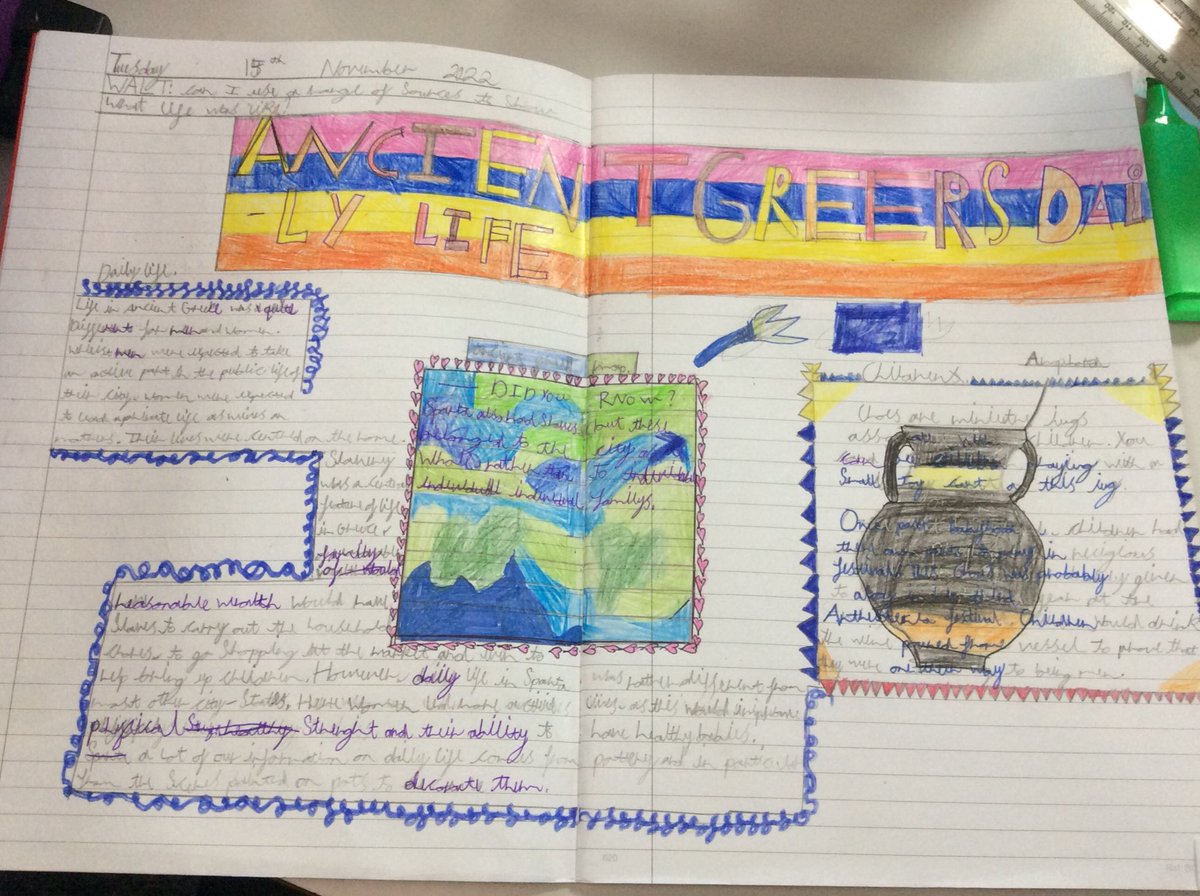 Tuesday 15th November 2022
WALT: can I use a range of Sources to Show
what life was like
ANCIENT GREERS DAI
-LY LIFE
Daily life.
Life in ancient Greece was quite
different for men and women.
men were expected to take
an active part in the public life of
their city, women were expected
to lead a private life as wives an
mothers. Their lives were centred on the home.
Slavery
was a central
feature of life
in Greece
reasonable wealth would have
Slaves to carry out the household
chores to go Shopping at the market and even to
help bring up children. However daily life in Sparta was rather different from
most other city-States. Here women
physical Strenght and their ability to have healthy babies.
a lot of our information on daily life comes from pottery and in particular
from the Scenes painted on pots to decorate them.
map
DID You RNow?
Sparta also had Slaves but these
belonged to the city as
Whole rather than to
individual familys.
Amphora
Children
Choes are miniature jugs
associated with children. You
can playing with a
Small toy cart on this jug.
Once past children had
their own parts to play in religious
festivals. this Choes was probably given
to a
Anthesteria festival. Children would drink
the wine poured from vessel to prove that
they were on their way to being men.